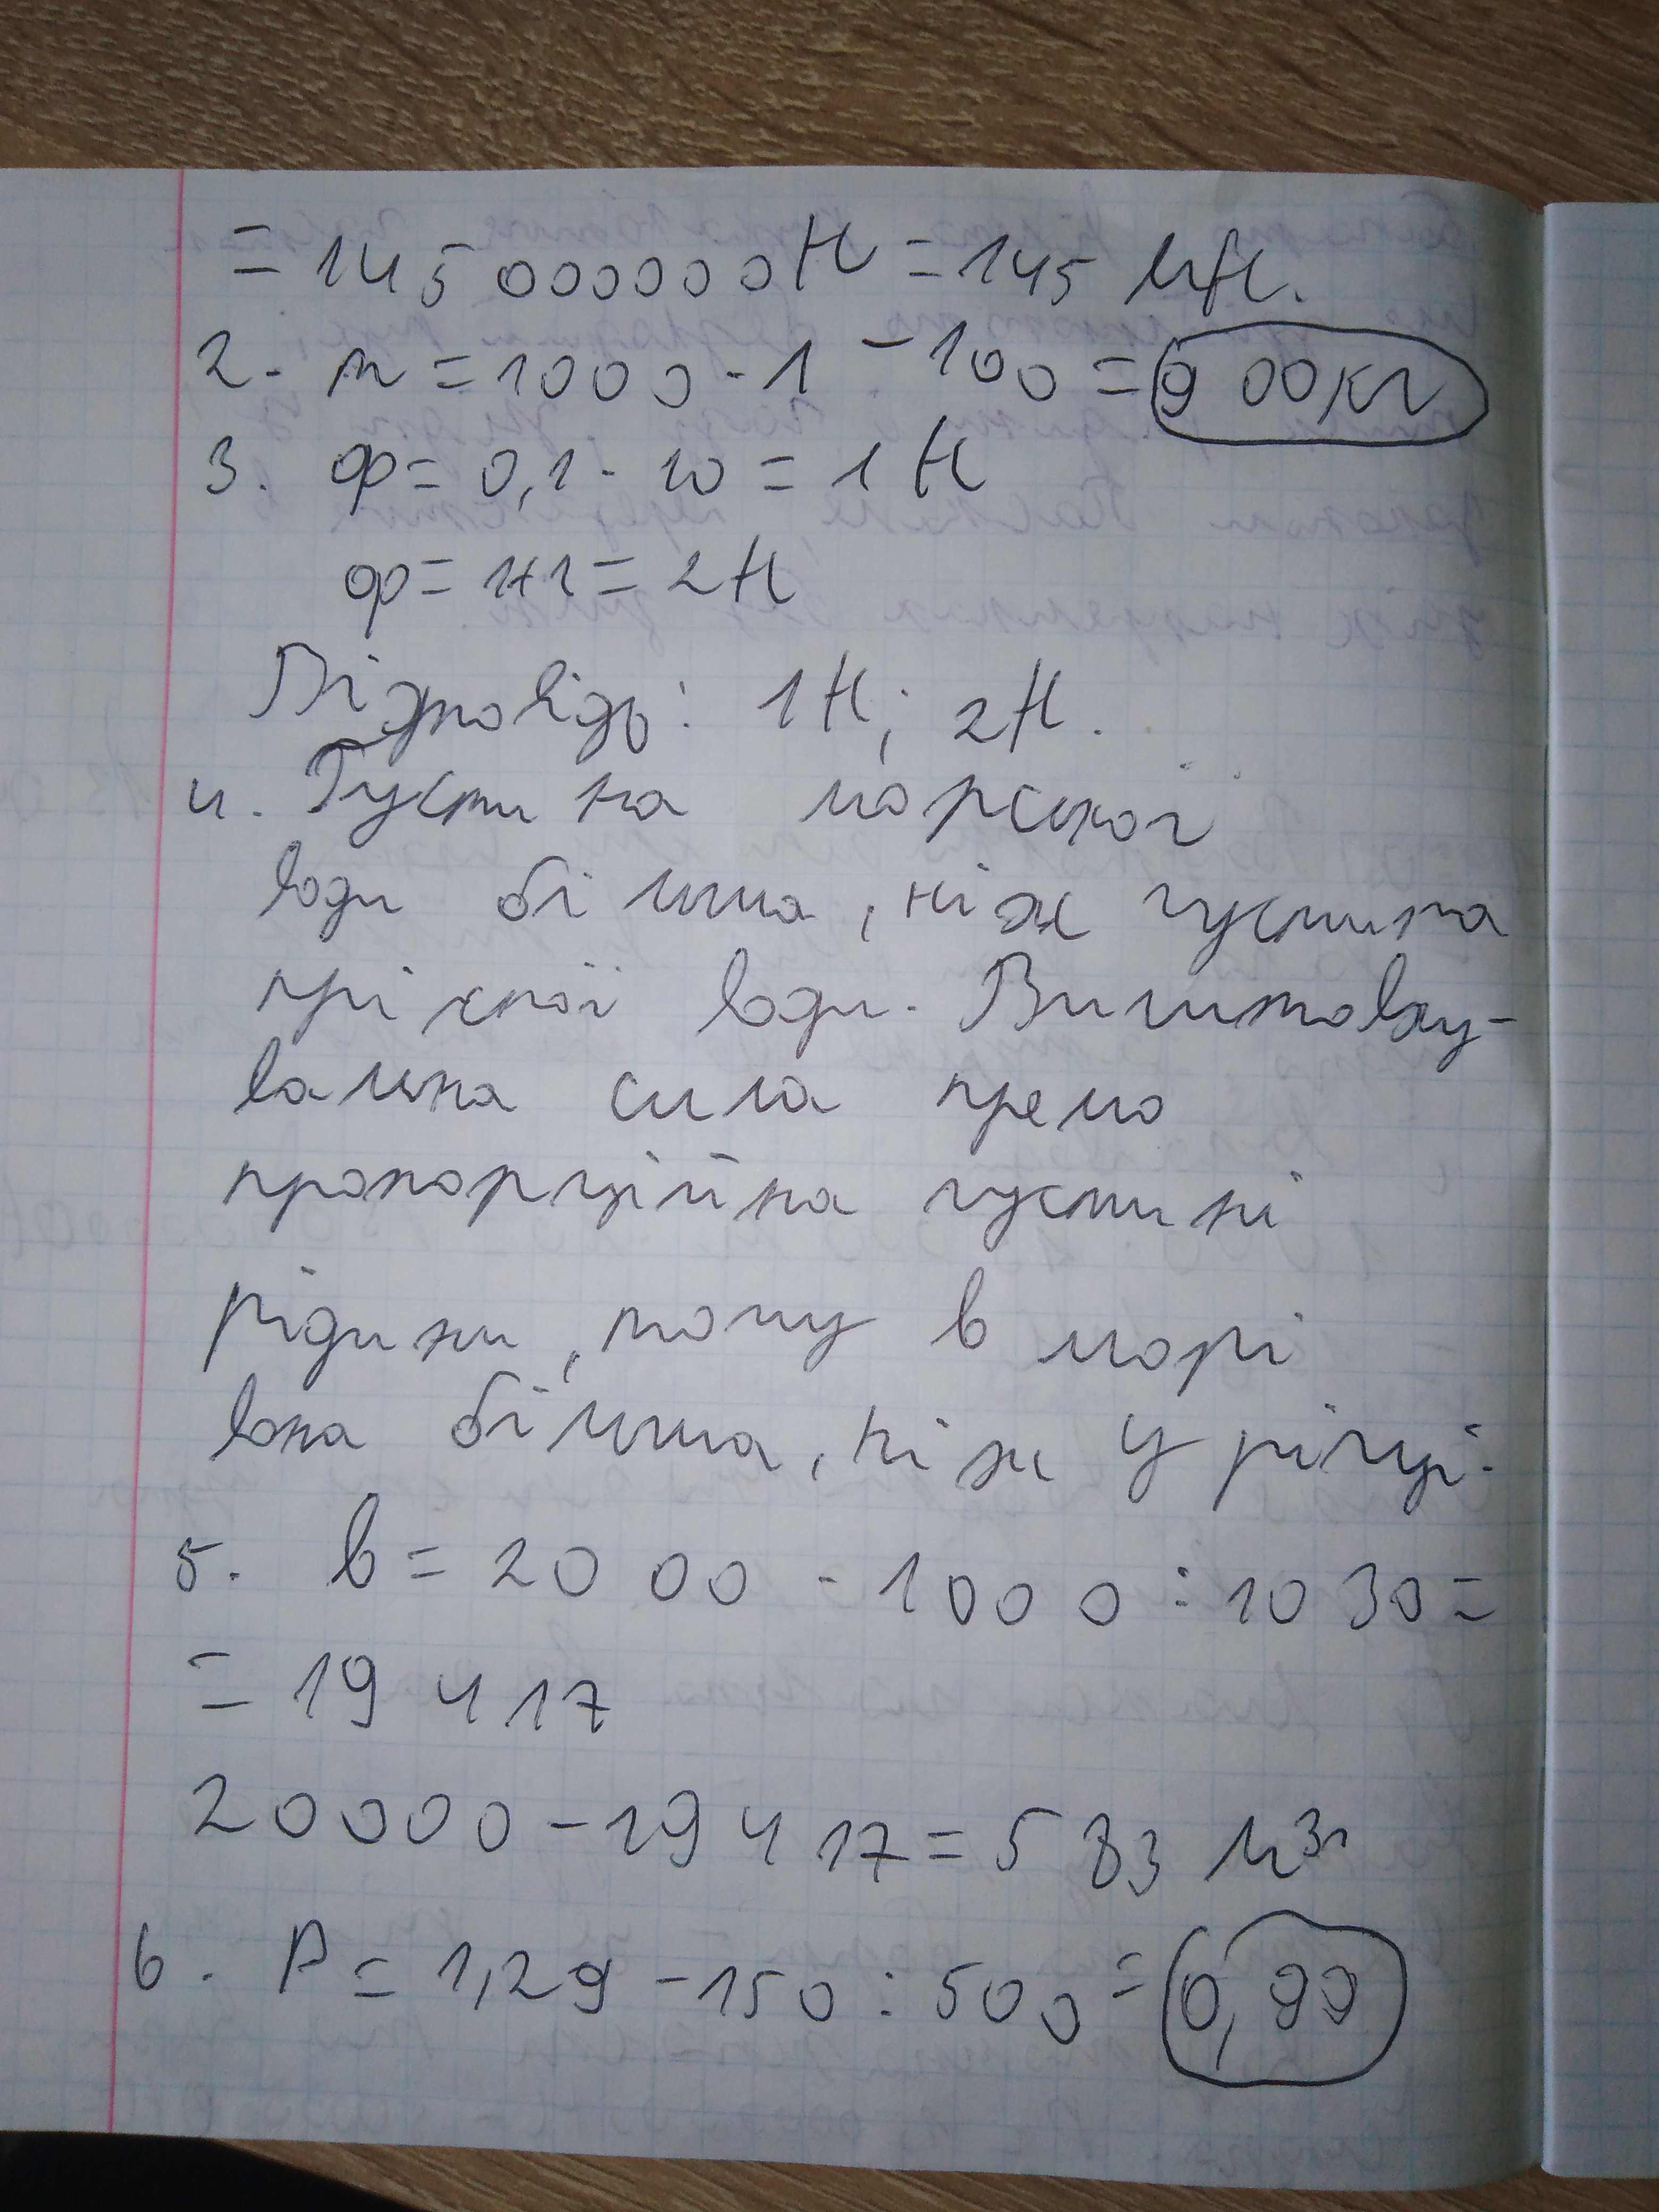 = 145 000000Н = 145 МН.
2. m = 1000 · 1 - 100 = 900кг
3. ф = 0,1 · 10 = 1 Н
ф = 1+1 = 2Н
Відповідь: 1Н; 2Н.
4. Густина морської
води більша, ніж густина
прісної води. Виштовху-
вальна сила прямо
пропорційна густині
рідини, тому в морі
вона більша, ніж у річці.
5. в = 20 00 · 1000 : 1030 =
= 19 417
20000 - 19 417 = 583 м³
6. P = 1,29 - 150 : 500 = 0,99